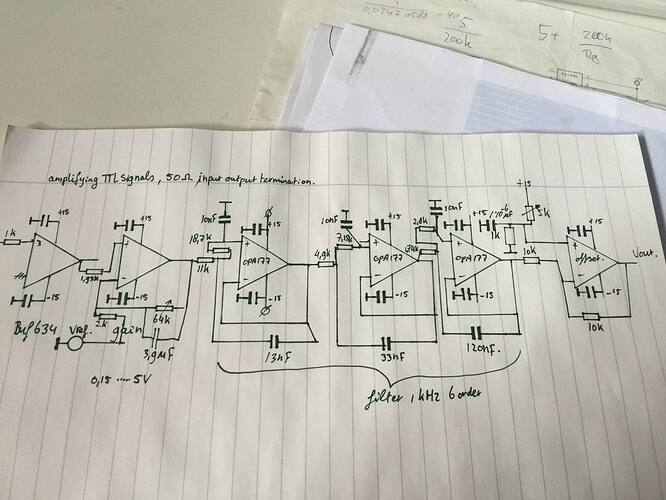 5
200k
5+ 200k
amplifying TTL signals, 50Ω input output termination.
+15
1k
3
+15
+15
10nF
18,7k
+15
10nF
+15
2,8k
10nF
+15
1k
5k
+15
1,95k
11k
OPA177
4,9k
7,15k
OPA177
OPA177
10k
offset.
Vout.
-15
-15
-15
-15
-15
-15
Buf634
2k
gain
64k
10k
Vref.
3,9µF
13nF
33nF
120nF.
0,15 ..... 5V
filter 1kHz 6 order